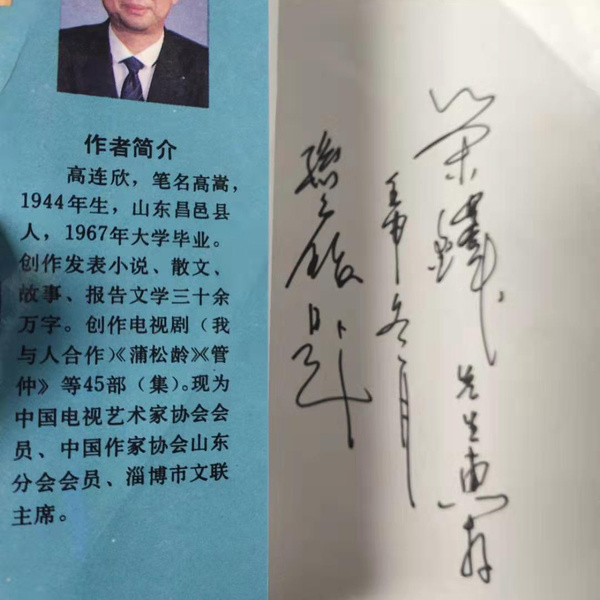 作者简介
高连欣，笔名高嵩，
1944年生，山东昌邑县
人，1967年大学毕业。
创作发表小说、散文、
故事、报告文学三十余
万字。创作电视剧（我
与人合作）《蒲松龄》《管
仲》等45部（集）。现为
中国电视艺术家协会会
员、中国作家协会山东
分会会员、淄博市文联
主席。
先生惠存
壬申冬月